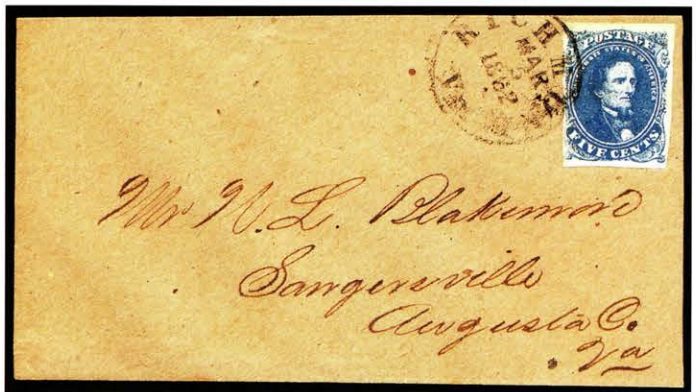 RICHMOND
MAR
2
1862
VA.
POSTAGE
CONFEDERATE STATES OF AMERICA
FIVE CENTS
Mr. N. L. Blakemore
Sangersville
Augusta Co.
Va